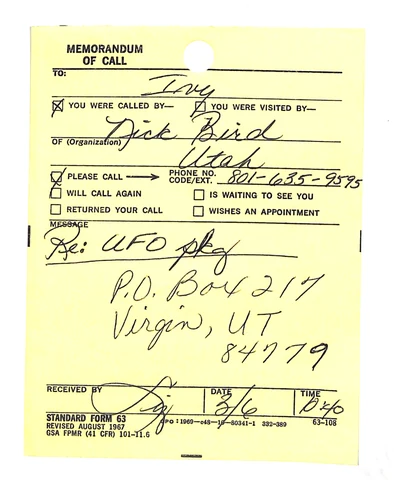 MEMORANDUM
OF CALL
TO:
Ivy
YOU WERE CALLED BY— YOU WERE VISITED BY—
Dick Bird
OF (Organization)
Utah
PLEASE CALL PHONE NO. CODE/EXT. 801-635-9595
WILL CALL AGAIN IS WAITING TO SEE YOU
RETURNED YOUR CALL WISHES AN APPOINTMENT
MESSAGE
Re: UFO pkg
P.O. Box 217
Virgin, UT
84779
RECEIVED BY DATE 3/6 TIME
STANDARD FORM 63
REVISED AUGUST 1967
GSA FPMR (41 CFR) 101-11.6
GPO : 1969—c48—16—80341-1 332-389
63-108